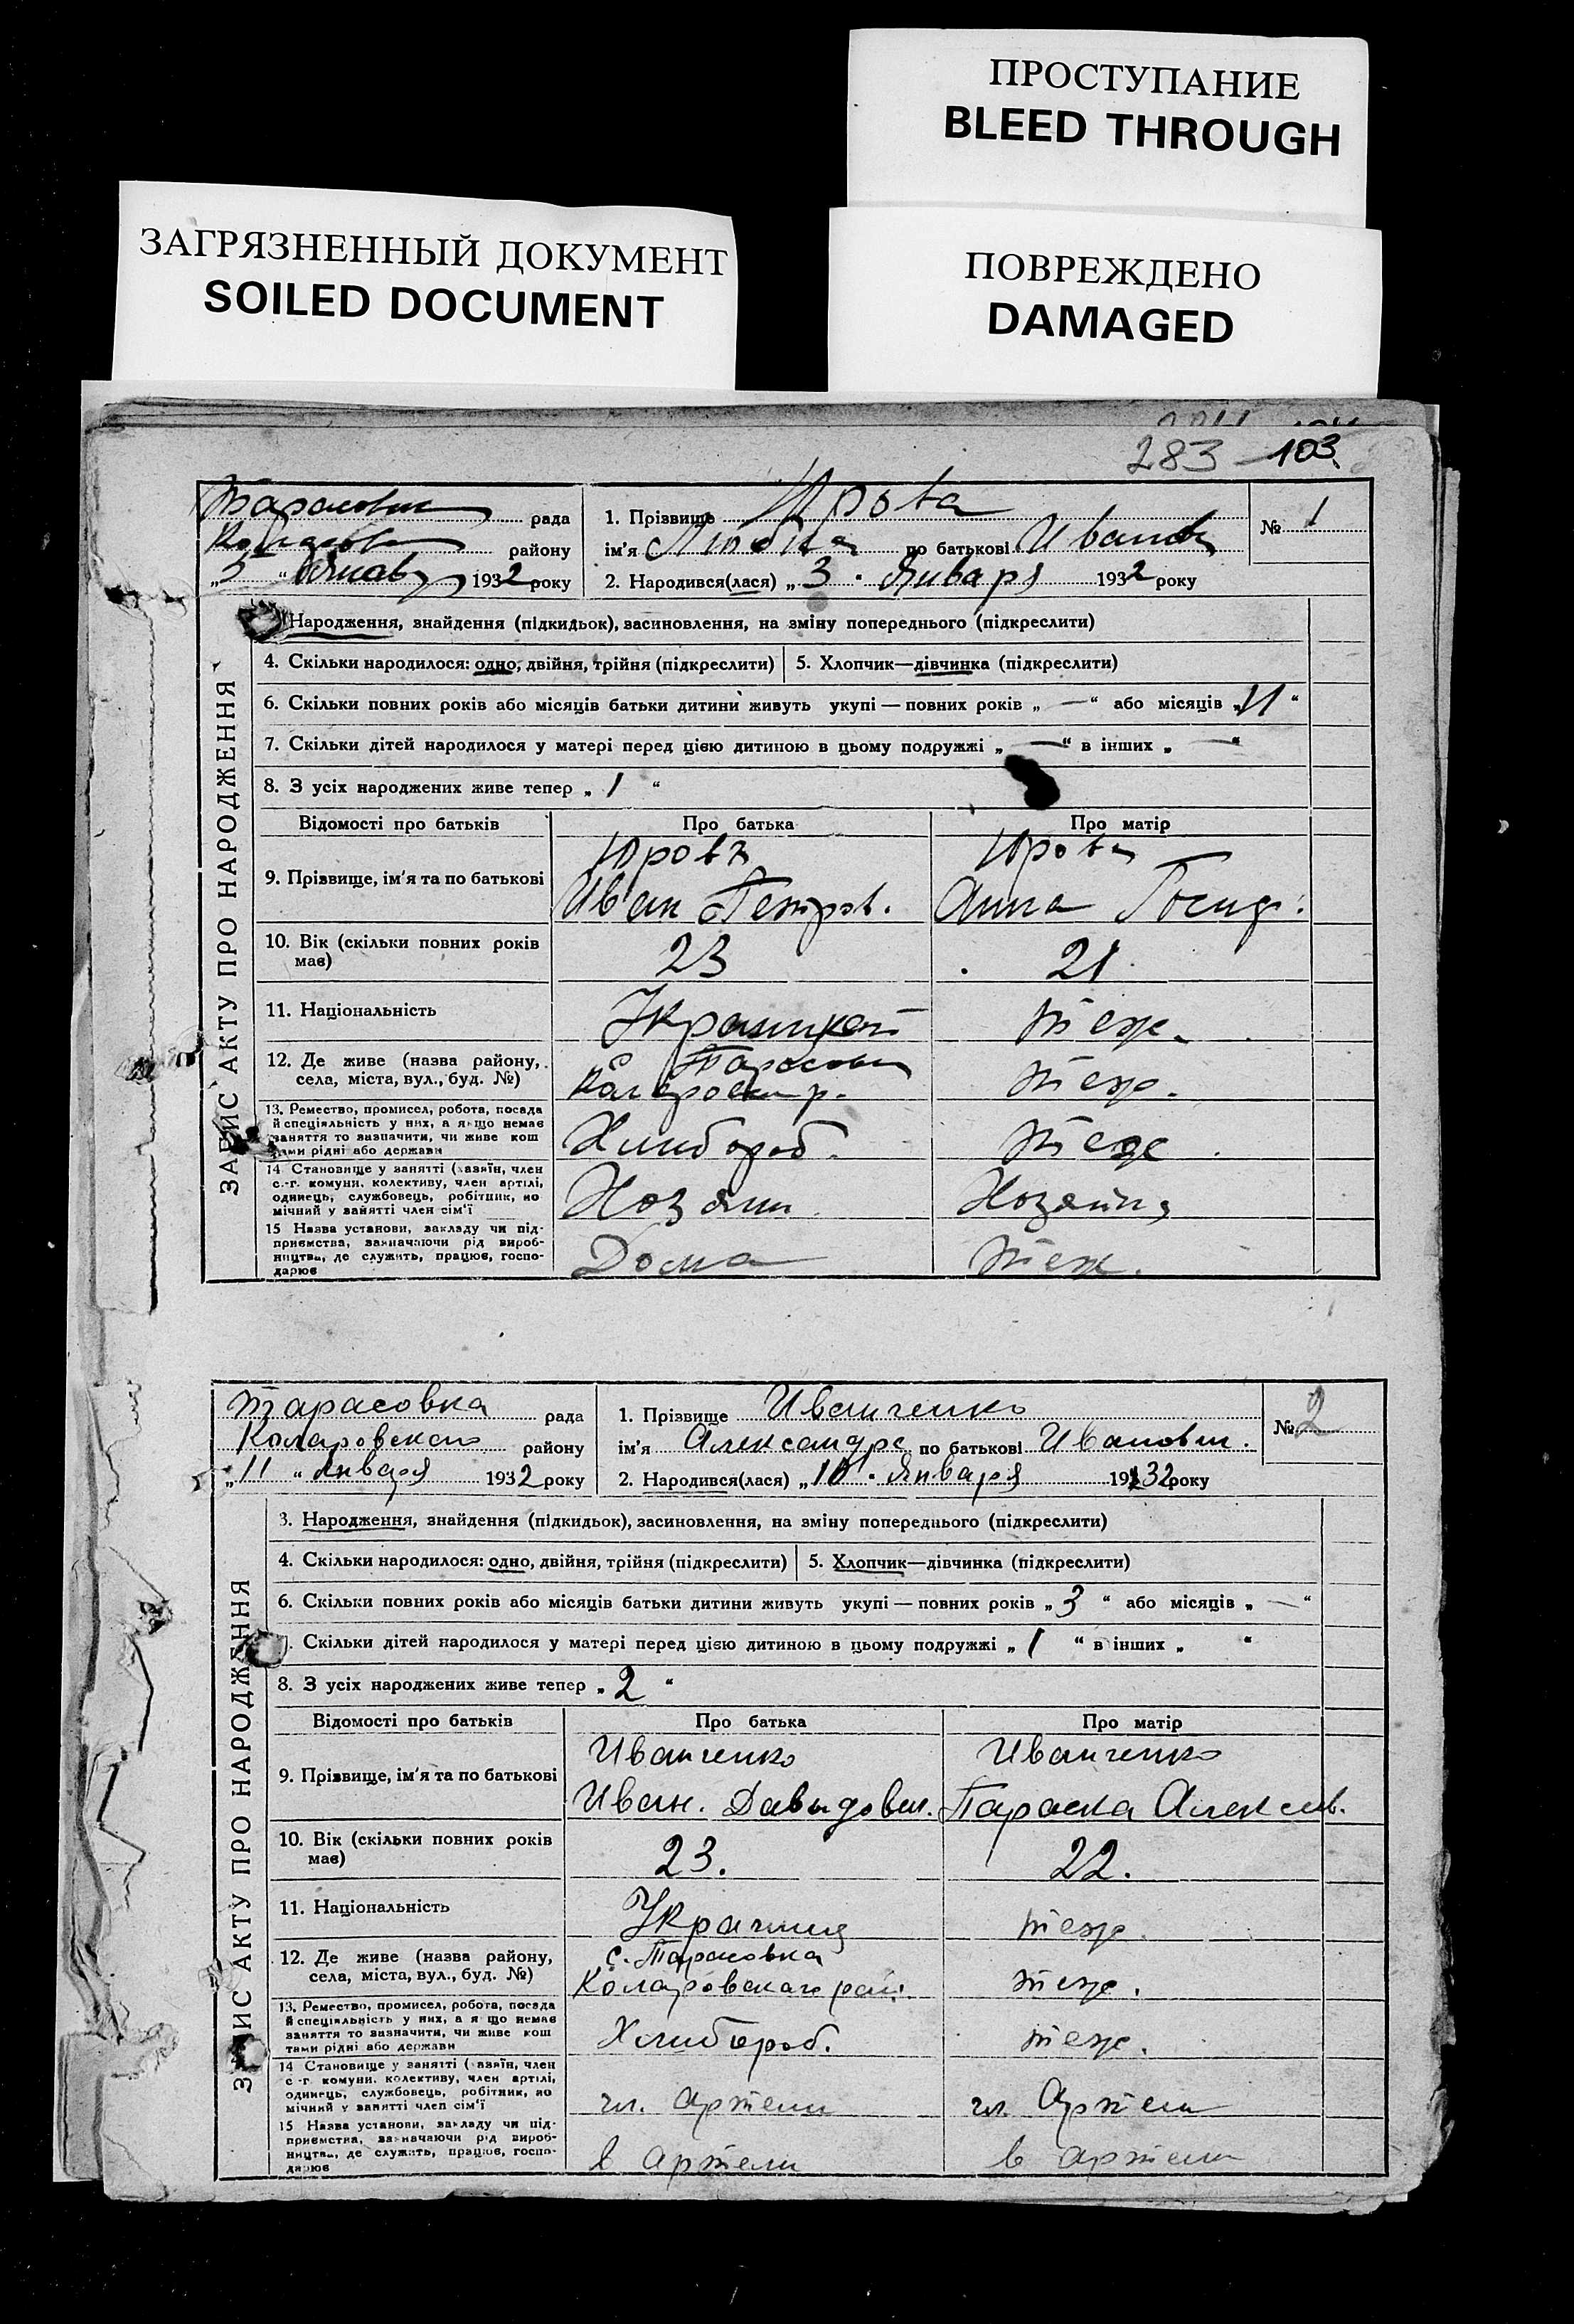 ПРОСТУПАНИЕ
BLEED THROUGH
ЗАГРЯЗНЕННЫЙ ДОКУМЕНТ
SOILED DOCUMENT
ПОВРЕЖДЕНО
DAMAGED
283 103
рада
району
„3 “ 1932 року
1. Прізвище Юрова
ім'я Любка по батькові Иванов
2. Народився(лася) „3 “ Января 1932 року
№ 1
ЗАПИС АКТУ ПРО НАРОДЖЕННЯ
Народження, знайдення (підкидьок), засиновлення, на зміну попереднього (підкреслити)
4. Скільки народилося: одно, двійня, трійня (підкреслити) 5. Хлопчик—дівчинка (підкреслити)
6. Скільки повних років або місяців батьки дитини живуть укупі — повних років „ — “ або місяців „11 “
7. Скільки дітей народилося у матері перед цією дитиною в цьому подружжі „ — “ в інших „ — “
8. З усіх народжених живе тепер „ 1 “
Відомості про батьків Про батька Про матір
9. Прізвище, ім'я та по батькові
Юровъ Юрова
Иван Петров. Анна
10. Вік (скільки повних років має) 23 21
11. Національність теж.
12. Де живе (назва району, села, міста, вул., буд. №)
с Тарасовк
теж.
13. Ремество, промисел, робота, посада й спеціяльність у них, а якщо немає заняття то зазначити, чи живе коштами рідні або держави
Хлибороб. теж
14 Становище у занятті (хазяїн, член с.-г. комуни, колективу, член артілі, одинець, службовець, робітник, помічний у занятті член сім'ї
Хозяин Хозяйка
15 Назва установи, закладу чи підприємства, зазначаючи рід виробництва, де служить, працює, господарює
Дома теж.
Тарасовка рада
Коларовского району
„11 “ Января 1932 року
1. Прізвище Иванченко
ім'я Александр по батькові Иванович.
2. Народився(лася) „10 “ Января 1932 року
№ 2
ЗАПИС АКТУ ПРО НАРОДЖЕННЯ
3. Народження, знайдення (підкидьок), засиновлення, на зміну попереднього (підкреслити)
4. Скільки народилося: одно, двійня, трійня (підкреслити) 5. Хлопчик—дівчинка (підкреслити)
6. Скільки повних років або місяців батьки дитини живуть укупі — повних років „ 3 “ або місяців „ — “
Скільки дітей народилося у матері перед цією дитиною в цьому подружжі „ 1 “ в інших „ “
8. З усіх народжених живе тепер „ 2 “
Відомості про батьків Про батька Про матір
9. Прізвище, ім'я та по батькові
Иванченко Иванченко
Иван. Давыдович. Параска Алексеев.
10. Вік (скільки повних років має) 23. 22.
11. Національність Украинец теж
12. Де живе (назва району, села, міста, вул., буд. №)
с. Тарасовка
Коларовского рай. теж.
13. Ремество, промисел, робота, посада й спеціяльність у них, а якщо немає заняття то зазначити, чи живе коштами рідні або держави
Хлибороб. теж.
14 Становище у занятті (хазяїн, член с.-г. комуни, колективу, член артілі, одинець, службовець, робітник, помічний у занятті член сім'ї
чл. Артели чл. Артели
15 Назва установи, закладу чи підприємства, зазначаючи рід виробництва, де служить, працює, господарює
в артели в артели